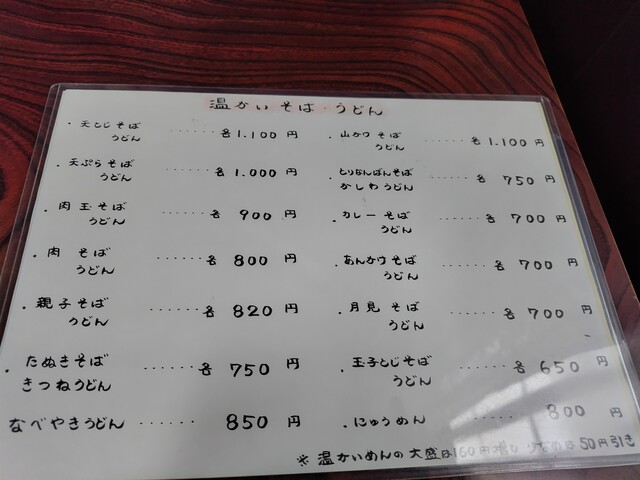 温かいそば・うどん
・天とじそば
うどん ······各1.100円
・天ぷらそば
うどん ······各1.000円
・肉玉そば
うどん ······各900円
・肉そば
うどん ······各800円
・親子そば
うどん ······各820円
・たぬきそば
きつねうどん ······各750円
なべやきうどん ······850円
・山かけそば
うどん ······各1.100円
・とりなんばんそば
かしわうどん ······各750円
・カレーそば
うどん ······各700円
・あんかけそば
うどん ······各700円
・月見そば
うどん ······各700円
・玉子とじそば
うどん ······各650円
・にゅうめん ······800円
※温かいめんの大盛は160円増し 少なめは50円引き